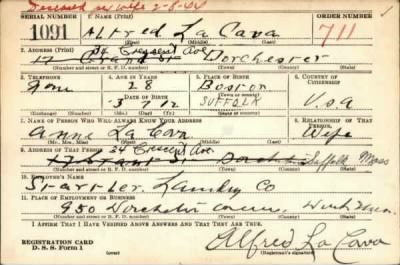 Deceased
SERIAL NUMBER 1. NAME (Print) ORDER NUMBER
1091 Alfred La Cava 711
(First) (Middle) (Last)
34 Crescent Ave
2. ADDRESS (Print)
17 Grant St Dorchester
(Number and street or R. F. D. number) (Town) (County) (State)
3. TELEPHONE 4. AGE IN YEARS 5. PLACE OF BIRTH 6. COUNTRY OF CITIZENSHIP
28 Boston
DATE OF BIRTH (Town or county)
3 7 12 SUFFOLK U.S.a
(Exchange) (Number) (Mo.) (Day) (Yr.) (State or country)
7. NAME OF PERSON WHO WILL ALWAYS KNOW YOUR ADDRESS 8. RELATIONSHIP OF THAT PERSON
Anna La Cava Wife
(Mr., Mrs., Miss) (First) (Middle) (Last)
34 Crescent Ave.
9. ADDRESS OF THAT PERSON
17 Grant St Dorchester Suffolk Mass
(Number and street or R. F. D. number) (Town) (County) (State)
10. EMPLOYER'S NAME
Laundry Co
11. PLACE OF EMPLOYMENT OR BUSINESS
950 Dorchester
(Number and street or R. F. D. number) (Town) (County) (State)
I AFFIRM THAT I HAVE VERIFIED ABOVE ANSWERS AND THAT THEY ARE TRUE.
REGISTRATION CARD
D. S. S. Form 1
Alfred La Cava
(Registrant's signature)